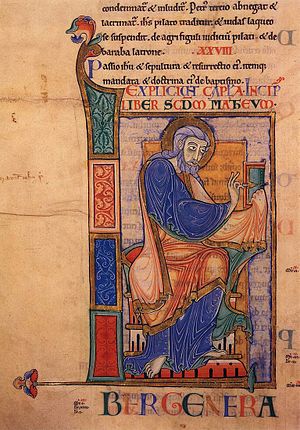 condemnat̄ et illudit̄. Petr̄ tercio abnegat et
lacrimat̄. ih̄s pilato tradit̄ et iudas laqueo
se suspendit. de agri figuli iudicii pilati et de
baraba latrone. XXVIII.
Passio ih̄u et sepultura et resurrectio
mandata et doctrina ei' de baptismo.
EXPLICIUNT CAPLA. INCIP̄
LIBER SCD̄M MATEUM.
BER GENERA